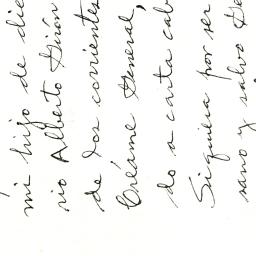 mi hijo de die
rio Alberto Girón
de los corrientes
Créame General,
do a carta cab
Siquiera por ser
sano y salvo de